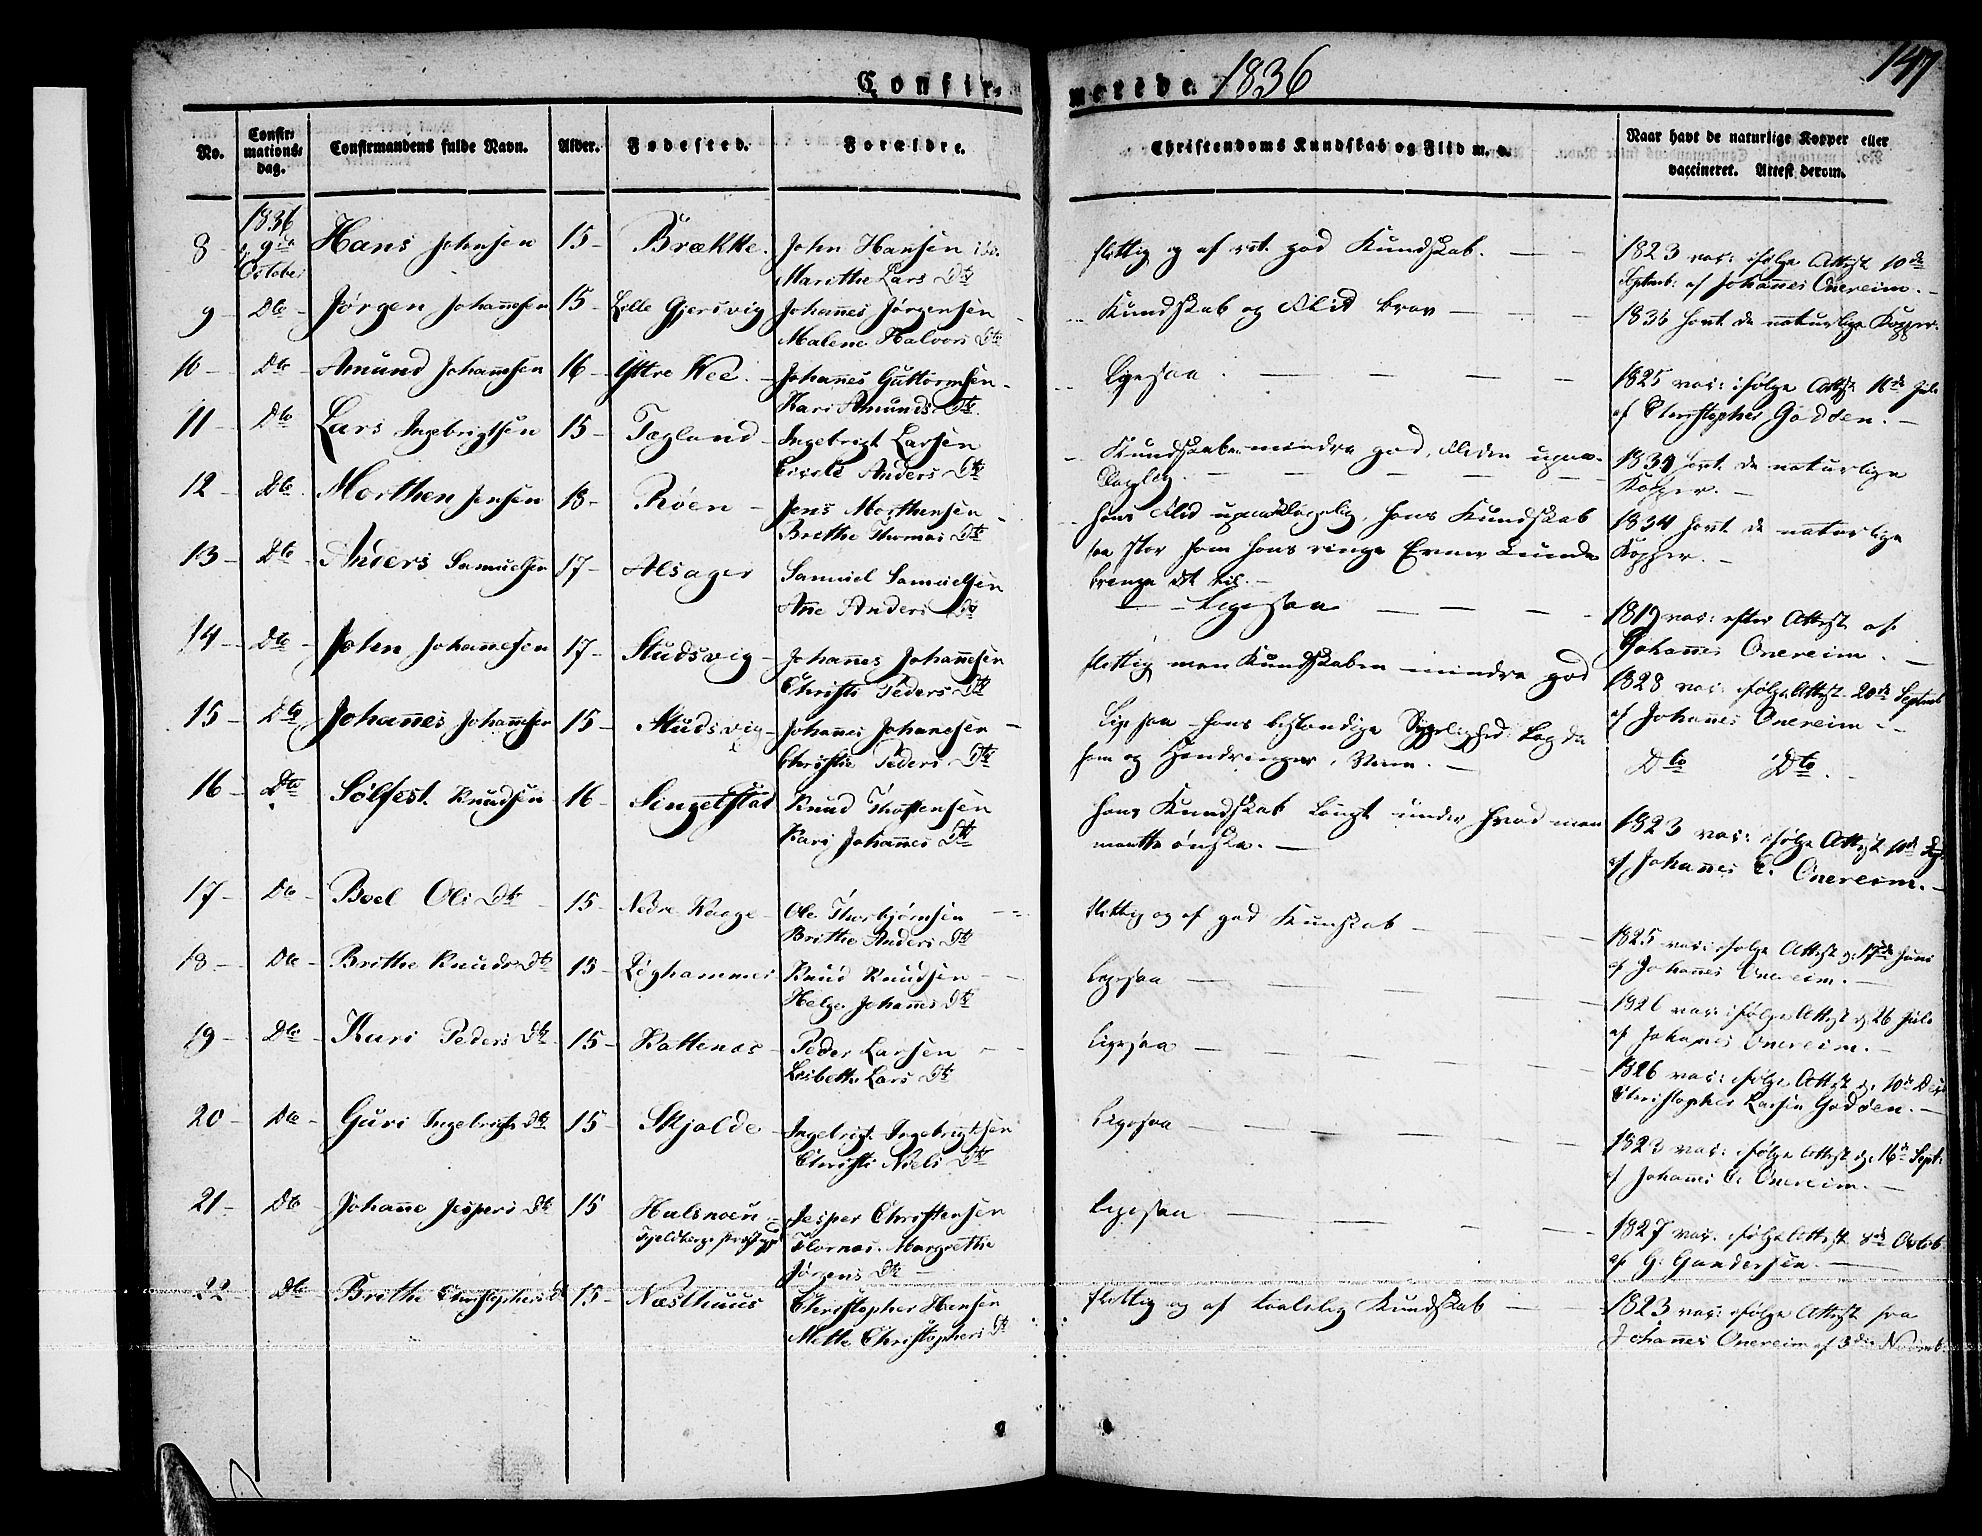 Confir-
merede. 1836
147
No.
Confir-
mations-
dag.
Confirmandens fulde Navn.
Alder.
Fødested.
Forældre.
Christendoms Kundskab og Flid m. v.
Naar havt de naturlige Kopper eller
vaccineret. Attest derom.
1836
8 - 9de Hans Johnsen 15 - Brække. John Hansen
October Marithe Lars Dtr
flittig og af ret god Kundskab. - -
1823 vac: ifølge Attest 10de
Septemb: af Johannes Onereim. -
9 - Dto - Jørgen Johannesen 15 - Lille Gjersvig Johannes Jørgensen
Malene Halvors Dtr
Kundskab og Flid brav - - -
1836 havt de naturlige Kopper.
10 - Dto - Amund Johannesen 16 - Yttre Wee. - Johannes Guttormsen -
Kari Amunds Dtr
Ligesaa . - - - - -
1825 vac: ifølge Attest 16de Juli
af Christopher Godøen. -
11 - Dto Lars Ingebrigtsen 15 - Tegland - Ingebrigt Larsen
Anders Dtr
Kundskaben mindre god, Fliden upaa-
klagelig. - - - -
havt de naturlige
Kopper. -
12 - Dto. Morthen Jensen 18 - Røen - Jens Morthensen -
Brithe Thomas Dtr
hans Flid upaaklagelig, hans Kundskab
saa stor som hans ringe Evner kunde
bringe det til. -
1834 havt de naturlige
Kopper. -
13 - Dto - Anders Samuelsen 17 - Alsager Samuel Samuelsen
Ane Anders Dtr
- - Ligesaa - - - -
1819 vac: efter Attest af
Johannes Onereim. -
14 - Dto - John Johannesen 17 - Studsvig - Johannes Johannesen
Christi Peders Dtr
flittig men Kundskaben mindre god
1828 vac: ifølge Attest 20de Septemb
af Johannes Onereim - -
15 - Dto Johannes Johannesen 15 - Studsvig - Johannes Johanesen -
Christie Peders Dtr
Ligesaa - hans bestandige Sygelighed lagde
ham og Hindringer i Veien. -
Dto Dto. -
16 - Dto Sølfest Knudsen 16 - Singelstad Knud
Kari Johannes Dtr
hans Kundskab langt under hvad man
maatte ønske. -
1823 vac: ifølge Attest 10de Sept
af Johannes C. Onereim. -
17 - Dto - Boel Ols Dtr - 15 - Nedre Vaage - Ole Thorbjørnsen - -
Brithe Anders Dtr
flittig og af god Kundskab - - - -
1825 vac: ifølge Attest d: 17de Juni
af Johannes Onereim. -
18 - Dto - Brithe Knuds Dtr 15 - Løghammer Knud Knudsen - -
Helge Johannes Dtr
Ligesaa - - - - - -
vac: ifølge Attest d: 26 Juli
af Johannes Onereim. -
19 - Dto - Kari Peders Dtr - 15 - Kattenæs - Peder Larsen - -
Lisbethe Lars Dtr
Ligesaa - - - - - -
1826 vac: ifølge Attest d: 10de Decbr
Christopher Larsen Godøen. -
20 - Dto - Guri Ingebrigts Dtr 15 - Skjolde - Ingebrigt Ingebrigtsen
Christi Niels Dtr
Ligesaa - - - - - -
1823 vac: ifølge Attest d: 16de Sept:
af Johannes C. Onereim. -
21 - Dto - Johanne Jespers Dtr 15 Halsnøen - Jesper Christensen
Fjeldberg Præstegj Margrethe
Jørgens Dtr -
Ligesaa - - - - - -
1827 vac: ifølge Attest 8de Octob
af G. Gundersen. -
22 - Dto Brithe Christophers Dtr 15 - Næsthuus Christopher Hansen
Mette Christophers Dtr
flittig og af taalelig Kundskab -
1823 vac: ifølge Attest fra
Johannes Onereim af 3die Novemb.